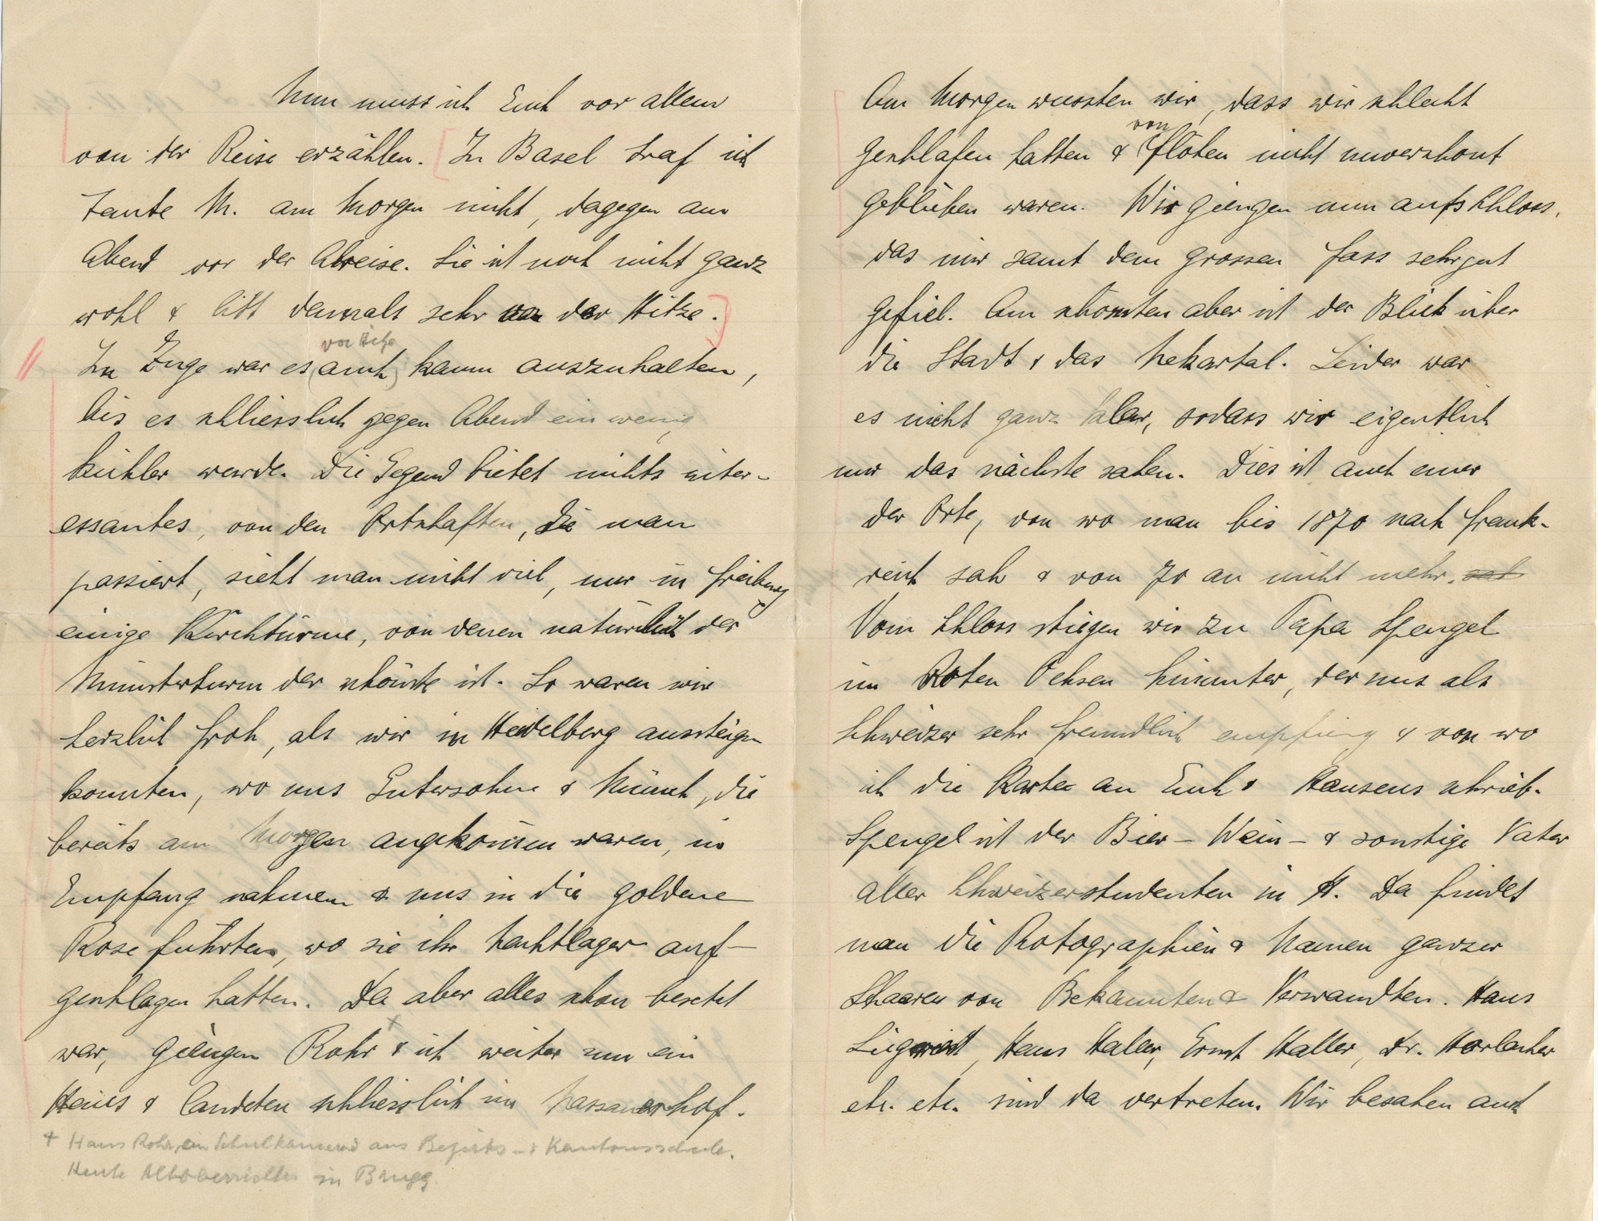 Nun muss ich Euch vor allem
von der Reise erzählen. [In Basel traf ich
Tante M. am Morgen nicht, dagegen am
Abend vor der Abreise. Sie ist noch nicht ganz
wohl & litt damals sehr von der Hitze.]
vor Hitze
Im Zuge war es (auch) kaum auszuhalten,
bis es schliesslich gegen Abend ein wenig
kühler wurde. Die Gegend bietet nichts inter-
essantes, von den Ortschaften, die man
passiert, sieht man nicht viel, nur in Freiburg
einige Kirchtürme, von denen natürlich der
Münsterturm der schönste ist. So waren wir
herzlich froh, als wir in Heidelberg aussteigen
konnten, wo uns Gutersohn & Münch, die
bereits am Morgen angekommen waren, in
Empfang nahmen & uns in die goldene
Rose führten, wo sie ihr Nachtlager auf-
geschlagen hatten. Da aber alles schon besetzt
war, giengen Rohr + & ich weiter um ein
Haus & landeten schliesslich im Nassauerhof.
+ Hans Rohr, ein Schulkamerad aus Bezirks- & Kantonsschule.
Heute Altoberrichter in Brugg.
Am Morgen wussten wir, dass wir schlecht
von
geschlafen hatten & Flöhen nicht unverschont
geblieben waren. Wir giengen nun aufs Schloss,
das mir samt dem grossen Fass sehr gut
gefiel. Am schönsten aber ist der Blick über
die Stadt & das Nekartal. Leider war
es nicht ganz klar, sodass wir eigentlich
nur das nächste sahen. Dies ist auch einer
der Orte, von wo man bis 1870 nach Frank-
reich sah & von 70 an nicht mehr. sah
Vom Schloss stiegen wir zu Papa Spengel
im Roten Ochsen hinunter, der uns als
Schweizer sehr freundlich empfieng & von wo
ich die Karten an Euch & Hausens schrieb.
Spengel ist der Bier- Wein- & sonstige Vater
aller Schweizerstudenten in H. Da findet
man die Photographien & Namen ganzer
Schaaren von Bekannten & Verwandten. Hans
Siegrist, Hans Haller, Ernst Haller, Dr. Horlacher
etc. etc. sind da vertreten. Wir besahen auch